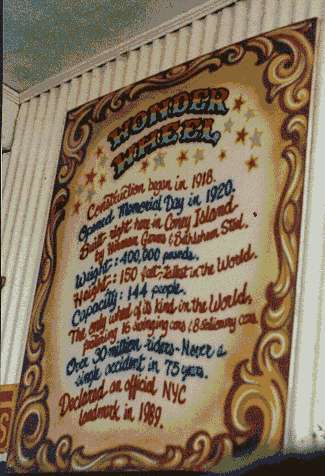 WONDER
WHEEL
Construction began in 1918.
Opened Memorial Day in 1920.
Built right here in Coney Island
by Herman Garms & Bethlehem Steel.
Weight: 400,000 pounds.
Height: 150 feet - Tallest in the World.
Capacity: 144 people.
The only wheel of its kind in the World,
featuring 16 swinging cars & 8 stationary cars.
Over 30 million riders - Never a
single accident in 75 years.
Declared an official NYC
landmark in 1989.
S